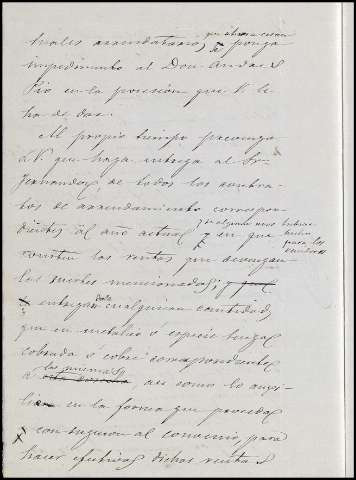 tuales arrendatarios que ahora esten
y ponga
impedimento al Don Andres
Pio en la posesión que V. le
ha de dar.
Al propio tiempo prevengo
a V. que haga entrega al Sr.
Fernandez de todos los contra-
tos de arrendamiento correspon-
dientes al año actual, y en que
si alguno nuevo hubiera
hecho
para los
venideros
consten las rentas que devengan
los mentes mencionados; y
entregar cualquiera cantidad
que en metálico ó especie tenga
cobrada ó cobre correspondiente
á las mismas, asi como lo auxi-
lie en la forma que proceda
con sugecion al convenio, para
hacer efectivas dichas rentas